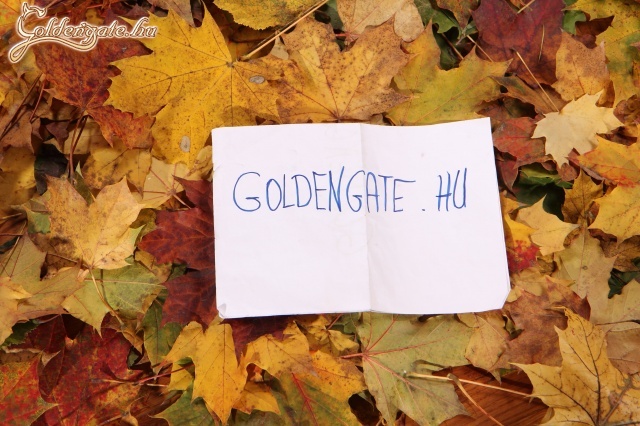 Goldengate.hu
GOLDENGATE.HU